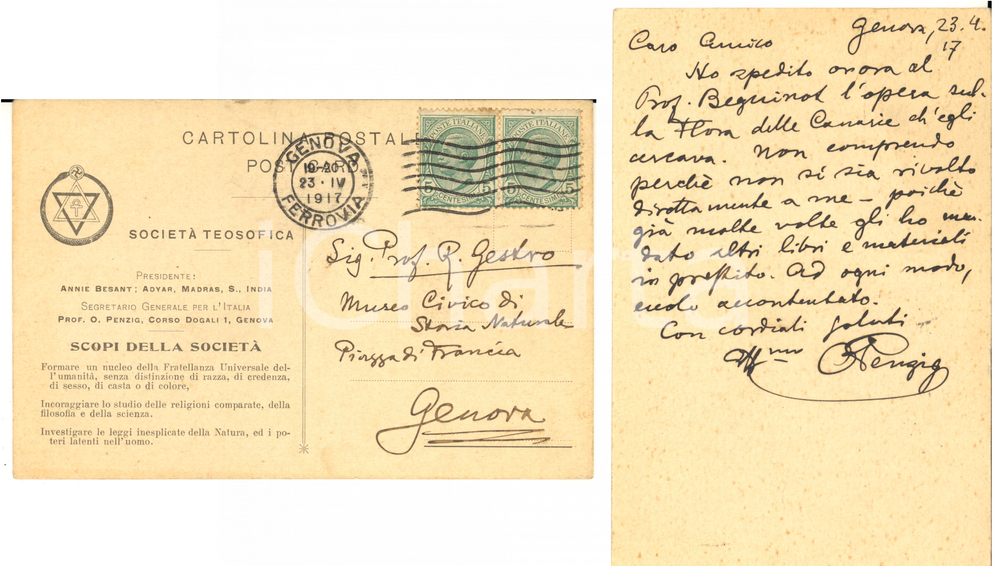 CARTOLINA POSTALE
POST CARD
GENOVA
19-20
23·IV
1917
FERROVIA
POSTE ITALIANE
POSTE ITALIANE
5 CENTESIMI 5
5 CENTESIMI 5
SOCIETÀ TEOSOFICA
PRESIDENTE:
ANNIE BESANT; ADYAR, MADRAS, S., INDIA
SEGRETARIO GENERALE PER L'ITALIA
PROF. O. PENZIG, CORSO DOGALI 1, GENOVA
SCOPI DELLA SOCIETÀ
Formare un nucleo della Fratellanza Universale del-
l'umanità, senza distinzione di razza, di credenza,
di sesso, di casta o di colore,
Incoraggiare lo studio delle religioni comparate, della
filosofia e della scienza.
Investigare le leggi inesplicate della Natura, ed i po-
teri latenti nell'uomo.
Sig. Prof. R. Gestro
Museo Civico di
Storia Naturale
Piazza di Francia
Genova
Genova, 23.4.
17
Caro Amico
Ho spedito orora al
Prof. Beguinot l'opera sul-
la Flora delle Canarie ch'egli
cercava. Non comprendo
perchè non si sia rivolto
direttamente a me – poichè
già molte volte gli ho man-
dato altri libri e materiali
in prestito. Ad ogni modo,
eccolo accontentato.
Con cordiali saluti
Aff.mo OPenzig